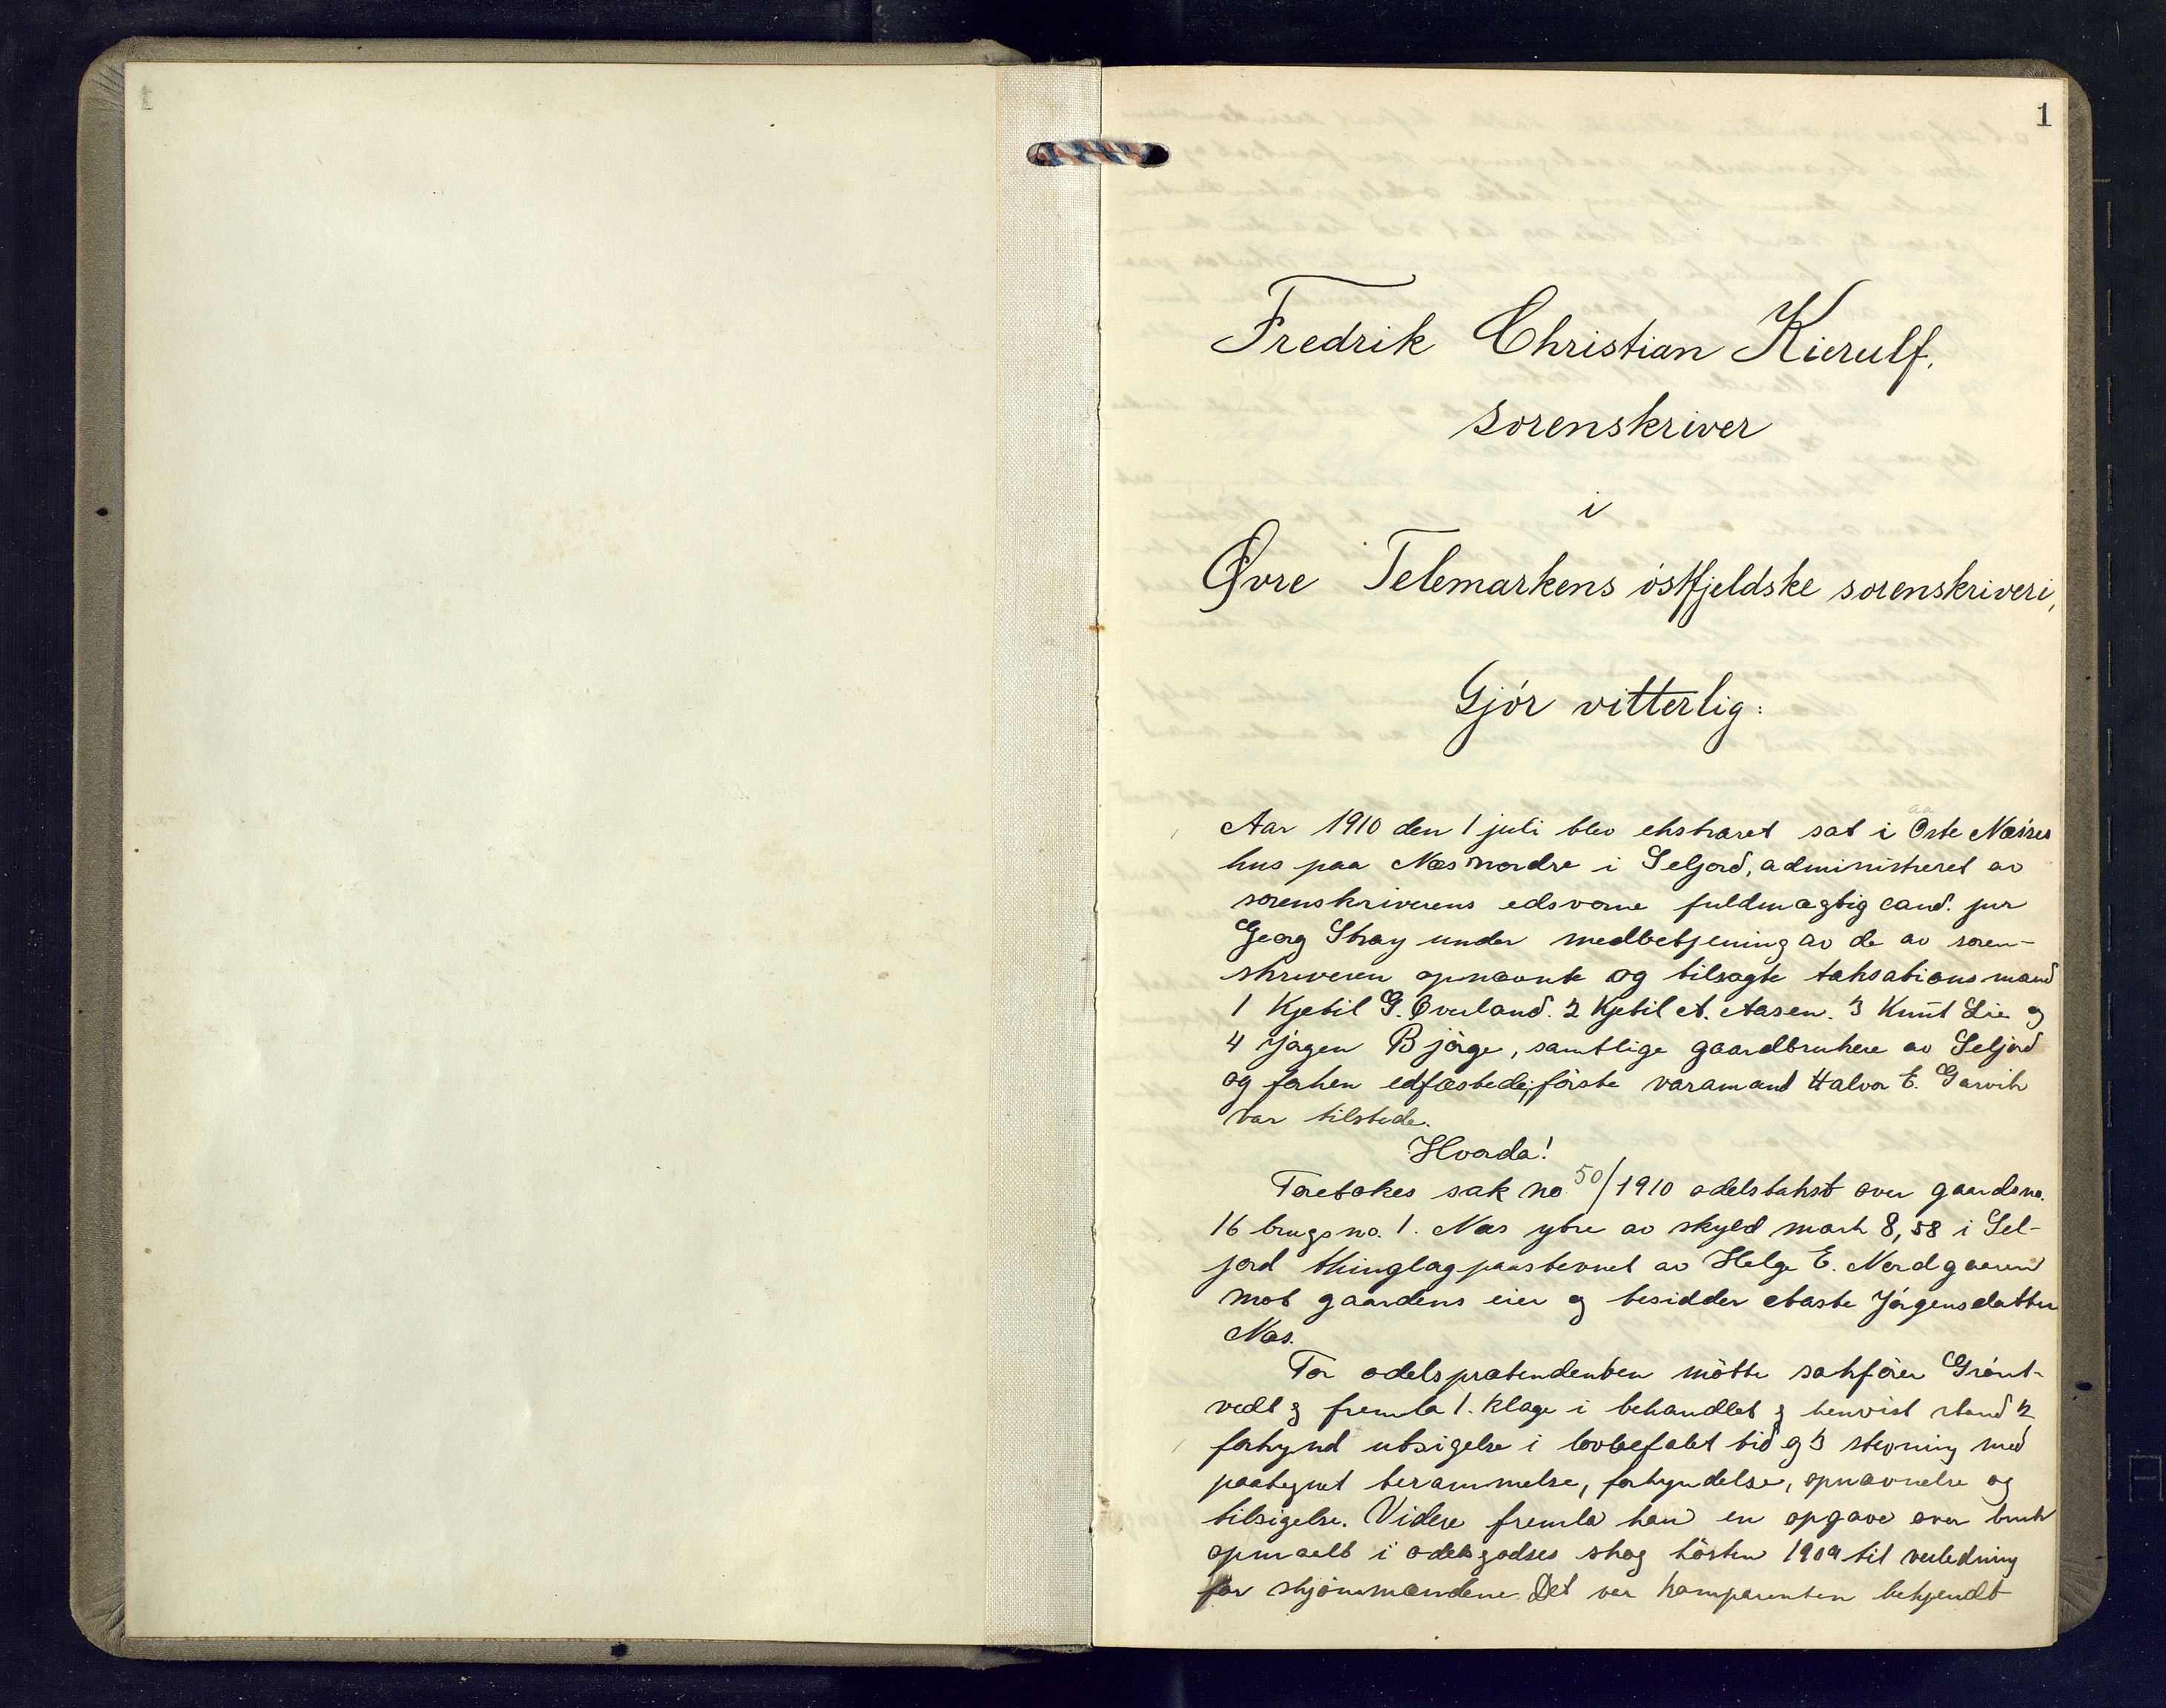 1
Fredrik Christian Kierulf.
sorenskriver
i
Øvre Telemarkens østfjeldske sorenskriveri,
Gjør vitterlig:
Aar 1910 den 1 juli blev ekstraret sat i Aaste Næsses
hus paa Næs nordre i Seljord, administreret av
sorenskriverens edsvorne fuldmægtig cand. jur
Georg Stray under medbetjening av de av soren-
skriveren opnævnte og tilsagte taksationsmænd
1 Kjetil G. Överland. 2 Kjetil A. Aasen. 3 Knut Lie og
4 Jørgen Bjørge, samtlige gaardbrukere av Seljord
og forhen edfæstede; første varamand Halvor E. Garvik
var tilstede.
Hvorda!
Foretokes sak no 50/1910 odelstakst over gaardsno.
16 brugsno. 1. Næs ytre av skyld mark 8,58 i Sel-
jord thinglag paastevnet av Helge E. Nordgaarden
mot gaardens eier og besidder Aaste Jørgensdatter
Næs.
For odelsprætendenten møtte sakfører Grønt-
vedt og fremla 1. klage i behandlet og henvist stand 2
forkynd utsigelse i lovbefalet tid og 3 stevning med
paategnet berammelse, forkyndelse, opnævnelse og
tilsigelse. Videre fremla han en opgave over
opmaalt i odelsgodses skog høsten 1909 til veiledning
for skjønsmændene. Det var komparenten bekjendt